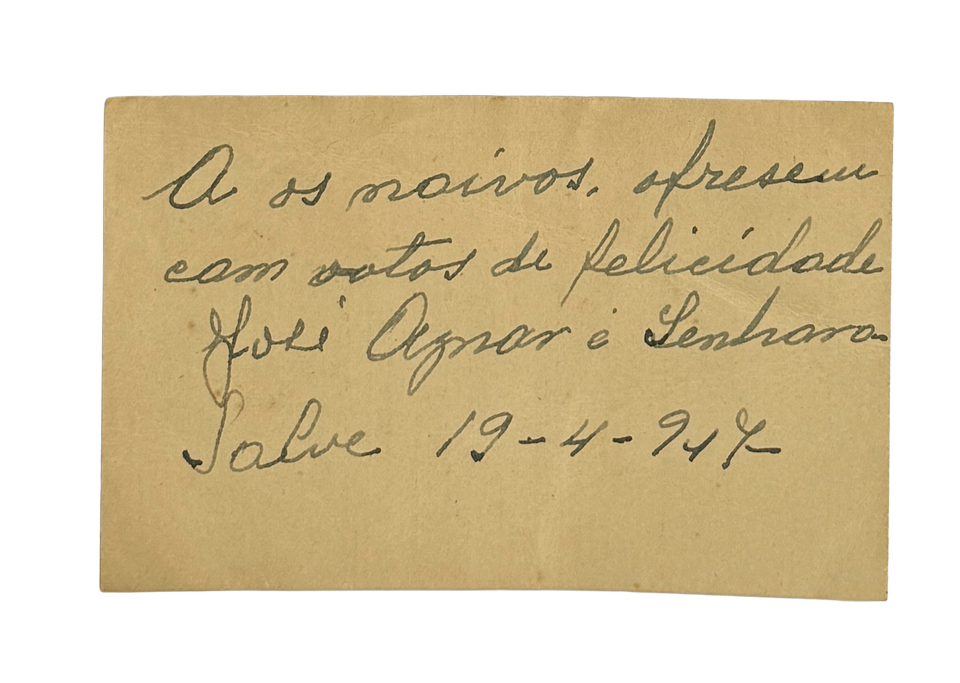 A os noivos, ofresem
com votos de felicidade
José Agnar e Senhora
Salve 19-4-947